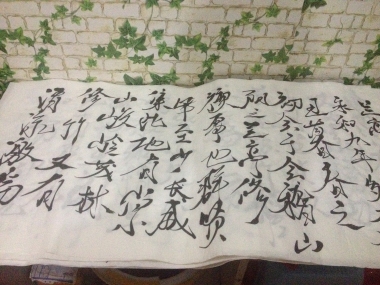 永和九年
暮春之
初會于會稽山
陰之蘭亭修
禊事也群賢
畢至少長咸
集此地有崇
山峻嶺茂林
修竹又有
清流激湍